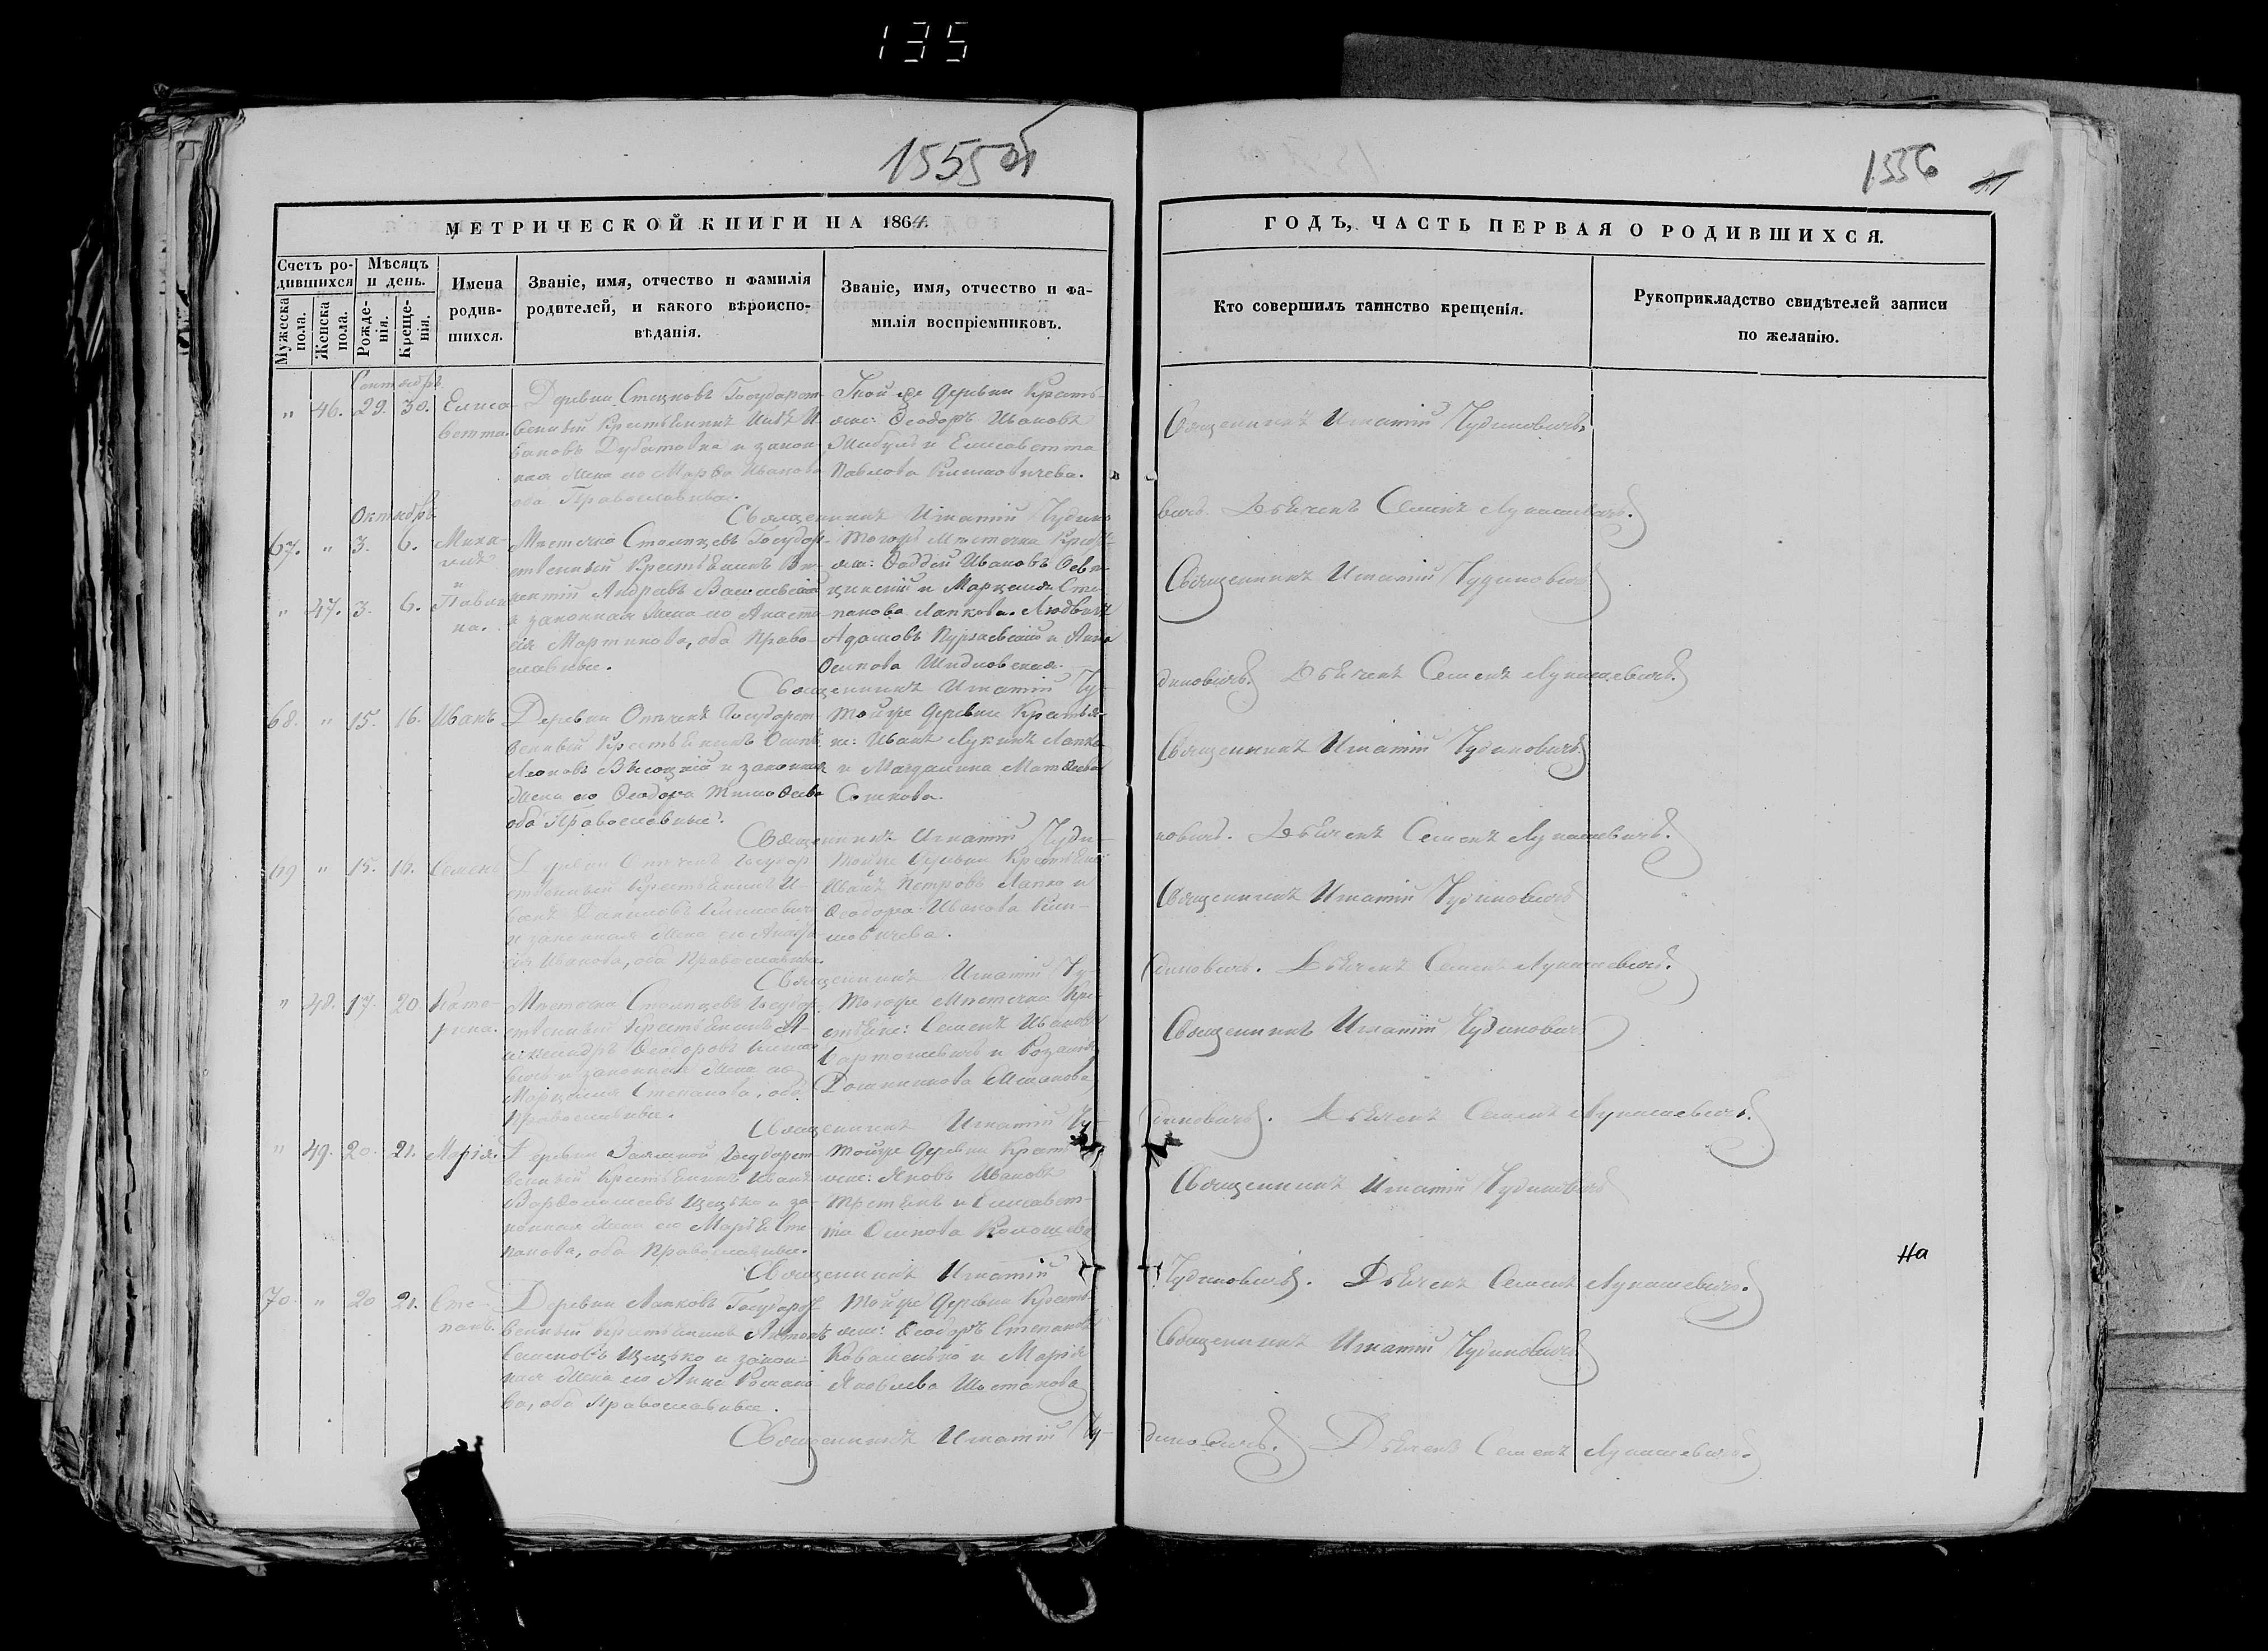 135
1555 об
1556
МЕТРИЧЕСКОЙ КНИГИ НА 1864.
ГОДЪ, ЧАСТЬ ПЕРВАЯ О РОДИВШИХСЯ.
Счетъ родившихся
Мужеска пола.
Женска пола.
Мѣсяцъ и день.
Рожденія.
Крещенія.
Имена родившихся.
Званіе, имя, отчество и фамилія
родителей, и какого вѣроиспо-
вѣданія.
Званіе, имя, отчество и фа-
милія воспріемниковъ.
Кто совершилъ таинство крещенія.
Рукоприкладство свидѣтелей записи
по желанію.
„ 46. 29. 30. Елиса-
ветта.
Деревни Государст-
венный Крестьянинъ И-
вановъ и закон-
ная жена его Марѳа Иванова
оба Православные.
той же деревни Крестья-
не: Ѳеодоръ Ивановъ
и Елисаветта
Павлова Климовичева.
Священникъ Игнатій Чудиновичъ.
Священникъ Игнатій Чудиновичъ. Дьячекъ Семенъ Лукашевичъ.
Октябрь
67. „ 3. 6. Миха-
илъ
и
„ 47. 3. 6. Павли-
на.
Мѣстечка Столпцевъ Государ-
ственный Крестьянинъ
и законная жена его Анаста-
сія Мартинова, оба Право-
славные.
тогоже мѣстечка Крестья-
не: Ѳаддей Ивановъ
и Марцелля Сте-
панова Лапкова. Людвикъ
Адамовъ и Анна
Осипова Шидловская.
Священникъ Игнатій Чудиновичъ
Священникъ Игнатій Чудиновичъ. Дьячекъ Семенъ Лукашевичъ.
68. „ 15. 16. Иванъ
Деревни Опечекъ Государст-
венный Крестьянинъ Осипъ
Леоновъ Высоцкій и законная
жена его Ѳеодора Тимоѳеева
оба Православные.
тойже деревни Крестья-
не: Иванъ Лукинъ Лапко
и Магдалина Матѳеева
Сошкова.
Священникъ Игнатій Чудиновичъ
Священникъ Игнатій Чудиновичъ. Дьячекъ Семенъ Лукашевичъ.
69 „ 15. 16. Семенъ
Деревни Опечекъ Государ-
ственный Крестьянинъ И-
ванъ Даниловъ Климовичъ
и законная жена его
Иванова, оба Православные.
тойже деревни Крестьяне:
Иванъ Петровъ Лапко и
Ѳеодора Иванова Кли-
мовичева.
Священникъ Игнатій Чудиновичъ
Священникъ Игнатій Чудиновичъ. Дьячекъ Семенъ Лукашевичъ.
„ 48. 17. 20. Кате-
рина.
Мѣстечка Столпцевъ Государ-
ственный Крестьянинъ А-
лександръ Ѳеодоровъ
и законная жена его
Марцелля Степанова, оба
Православные.
тогоже мѣстечка Кре-
стьяне: Семенъ Ивановъ
Бартошевичъ и Розалія
Священникъ Игнатій Чудиновичъ
Священникъ Игнатій Чудиновичъ. Дьячекъ Семенъ Лукашевичъ.
„ 49. 20. 21. Марія.
Деревни Государст-
венный Крестьянинъ Иванъ
Варѳоломеевъ Цецько и за-
конная жена его Марія Сте-
панова, оба Православные.
тойже деревни Крестья-
не: Яковъ Ивановъ
и Елисавет-
та Осипова
Священникъ Игнатій Чудиновичъ
Священникъ Игнатій Чудиновичъ. Дьячекъ Семенъ Лукашевичъ.
На
70. „ 20 21. Сте-
панъ.
Деревни Лапковъ Государст-
венный Крестьянинъ Антонъ
Семеновъ Цецько и закон-
ная жена его Анна Романо-
ва, оба Православные.
тойже деревни Крестья-
не: Ѳеодоръ Степановъ
Коваленко и Марія
Яковлева Шостакова
Священникъ Игнатій Чудиновичъ
Священникъ Игнатій Чудиновичъ. Дьячекъ Семенъ Лукашевичъ.